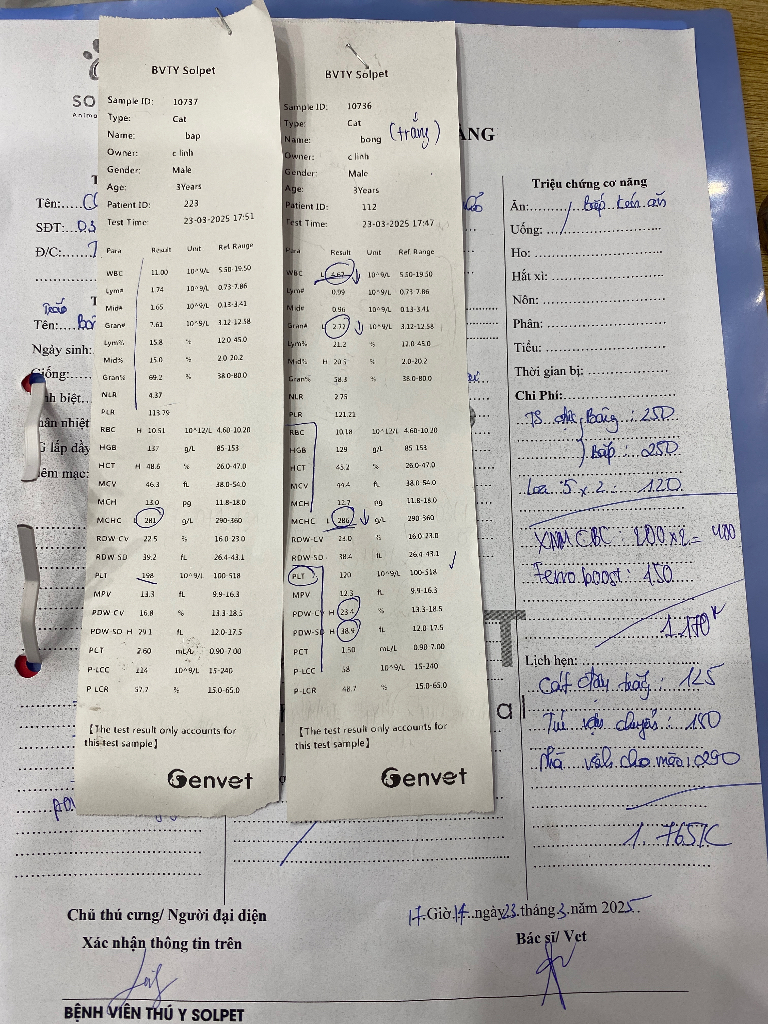 BVTY Solpet
Sample ID: 10737
Type: Cat
Name: bap
Owner: c linh
Gender: Male
Age: 3Years
Patient ID: 223
Test Time: 23-03-2025 17:51
Para Result Unit Ref. Range
WBC 11.00 10^9/L 5.50-19.50
Lym# 1.74 10^9/L 0.73-7.86
Mid# 1.65 10^9/L 0.13-3.41
Gran# 7.61 10^9/L 3.12-12.58
Lym% 15.8 % 12.0-45.0
Mid% 15.0 % 2.0-20.2
Gran% 69.2 % 38.0-80.0
NLR 4.37
PLR 113.79
RBC H 10.51 10^12/L 4.60-10.20
HGB 137 g/L 85-153
HCT H 48.6 % 26.0-47.0
MCV 46.3 fL 38.0-54.0
MCH 13.0 pg 11.8-18.0
MCHC L 281 g/L 290-360
RDW-CV 22.5 % 16.0-23.0
RDW-SD 39.2 fL 26.4-43.1
PLT 198 10^9/L 100-518
MPV 13.3 fL 9.9-16.3
PDW-CV 16.8 % 13.3-18.5
PDW-SD H 29.1 fL 12.0-17.5
PCT 2.60 mL/L 0.90-7.00
P-LCC 114 10^9/L 15-240
P-LCR 57.7 % 15.0-65.0
【The test result only accounts for
this test sample】
Genvet
BVTY Solpet
Sample ID: 10736
Type: Cat
Name: bong (trắng)
Owner: c linh
Gender: Male
Age: 3Years
Patient ID: 112
Test Time: 23-03-2025 17:47
Para Result Unit Ref. Range
WBC L 4.67 ↓ 10^9/L 5.50-19.50
Lym# 0.99 10^9/L 0.73-7.86
Mid# 0.96 10^9/L 0.13-3.41
Gran# L 2.72 ↓ 10^9/L 3.12-12.58
Lym% 21.2 % 12.0-45.0
Mid% H 20.5 % 2.0-20.2
Gran% 58.3 % 38.0-80.0
NLR 2.75
PLR 121.21
RBC 10.18 10^12/L 4.60-10.20
HGB 129 g/L 85-153
HCT 45.2 % 26.0-47.0
MCV 44.4 fL 38.0-54.0
MCH 12.7 pg 11.8-18.0
MCHC L 286 ↓ g/L 290-360
RDW-CV 23.0 % 16.0-23.0
RDW-SD 38.4 fL 26.4-43.1
PLT 120 10^9/L 100-518
MPV 12.3 fL 9.9-16.3
PDW-CV H 23.4 % 13.3-18.5
PDW-SD H 38.9 fL 12.0-17.5
PCT 1.50 mL/L 0.90-7.00
P-LCC 58 10^9/L 15-240
P-LCR 48.7 % 15.0-65.0
【The test result only accounts for
this test sample】
Genvet
SO
Tên:
SĐT: 03
Đ/C:
Tên:
Ngày sinh:
Giống:
ÀNG
Triệu chứng cơ năng
Ăn: Bắp kén ăn
Uống:
Ho:
Hắt xì:
Nôn:
Phân:
Tiểu:
Thời gian bị:
Chi Phí:
Bông: 250
Bắp: 250
Loa 5 x 2: 120
XNM CBC: 200 x 2 = 400
Ferroboost: 150
1.170K
Lịch hẹn:
125
Túi vận chuyển: 180
Nhà vệ sinh cho mèo: 290
1.765K
Chủ thú cưng/ Người đại diện
Xác nhận thông tin trên
17 Giờ 14 ngày 23 tháng 3 năm 2025
Bác sĩ/ Vet
BỆNH VIỆN THÚ Y SOLPET